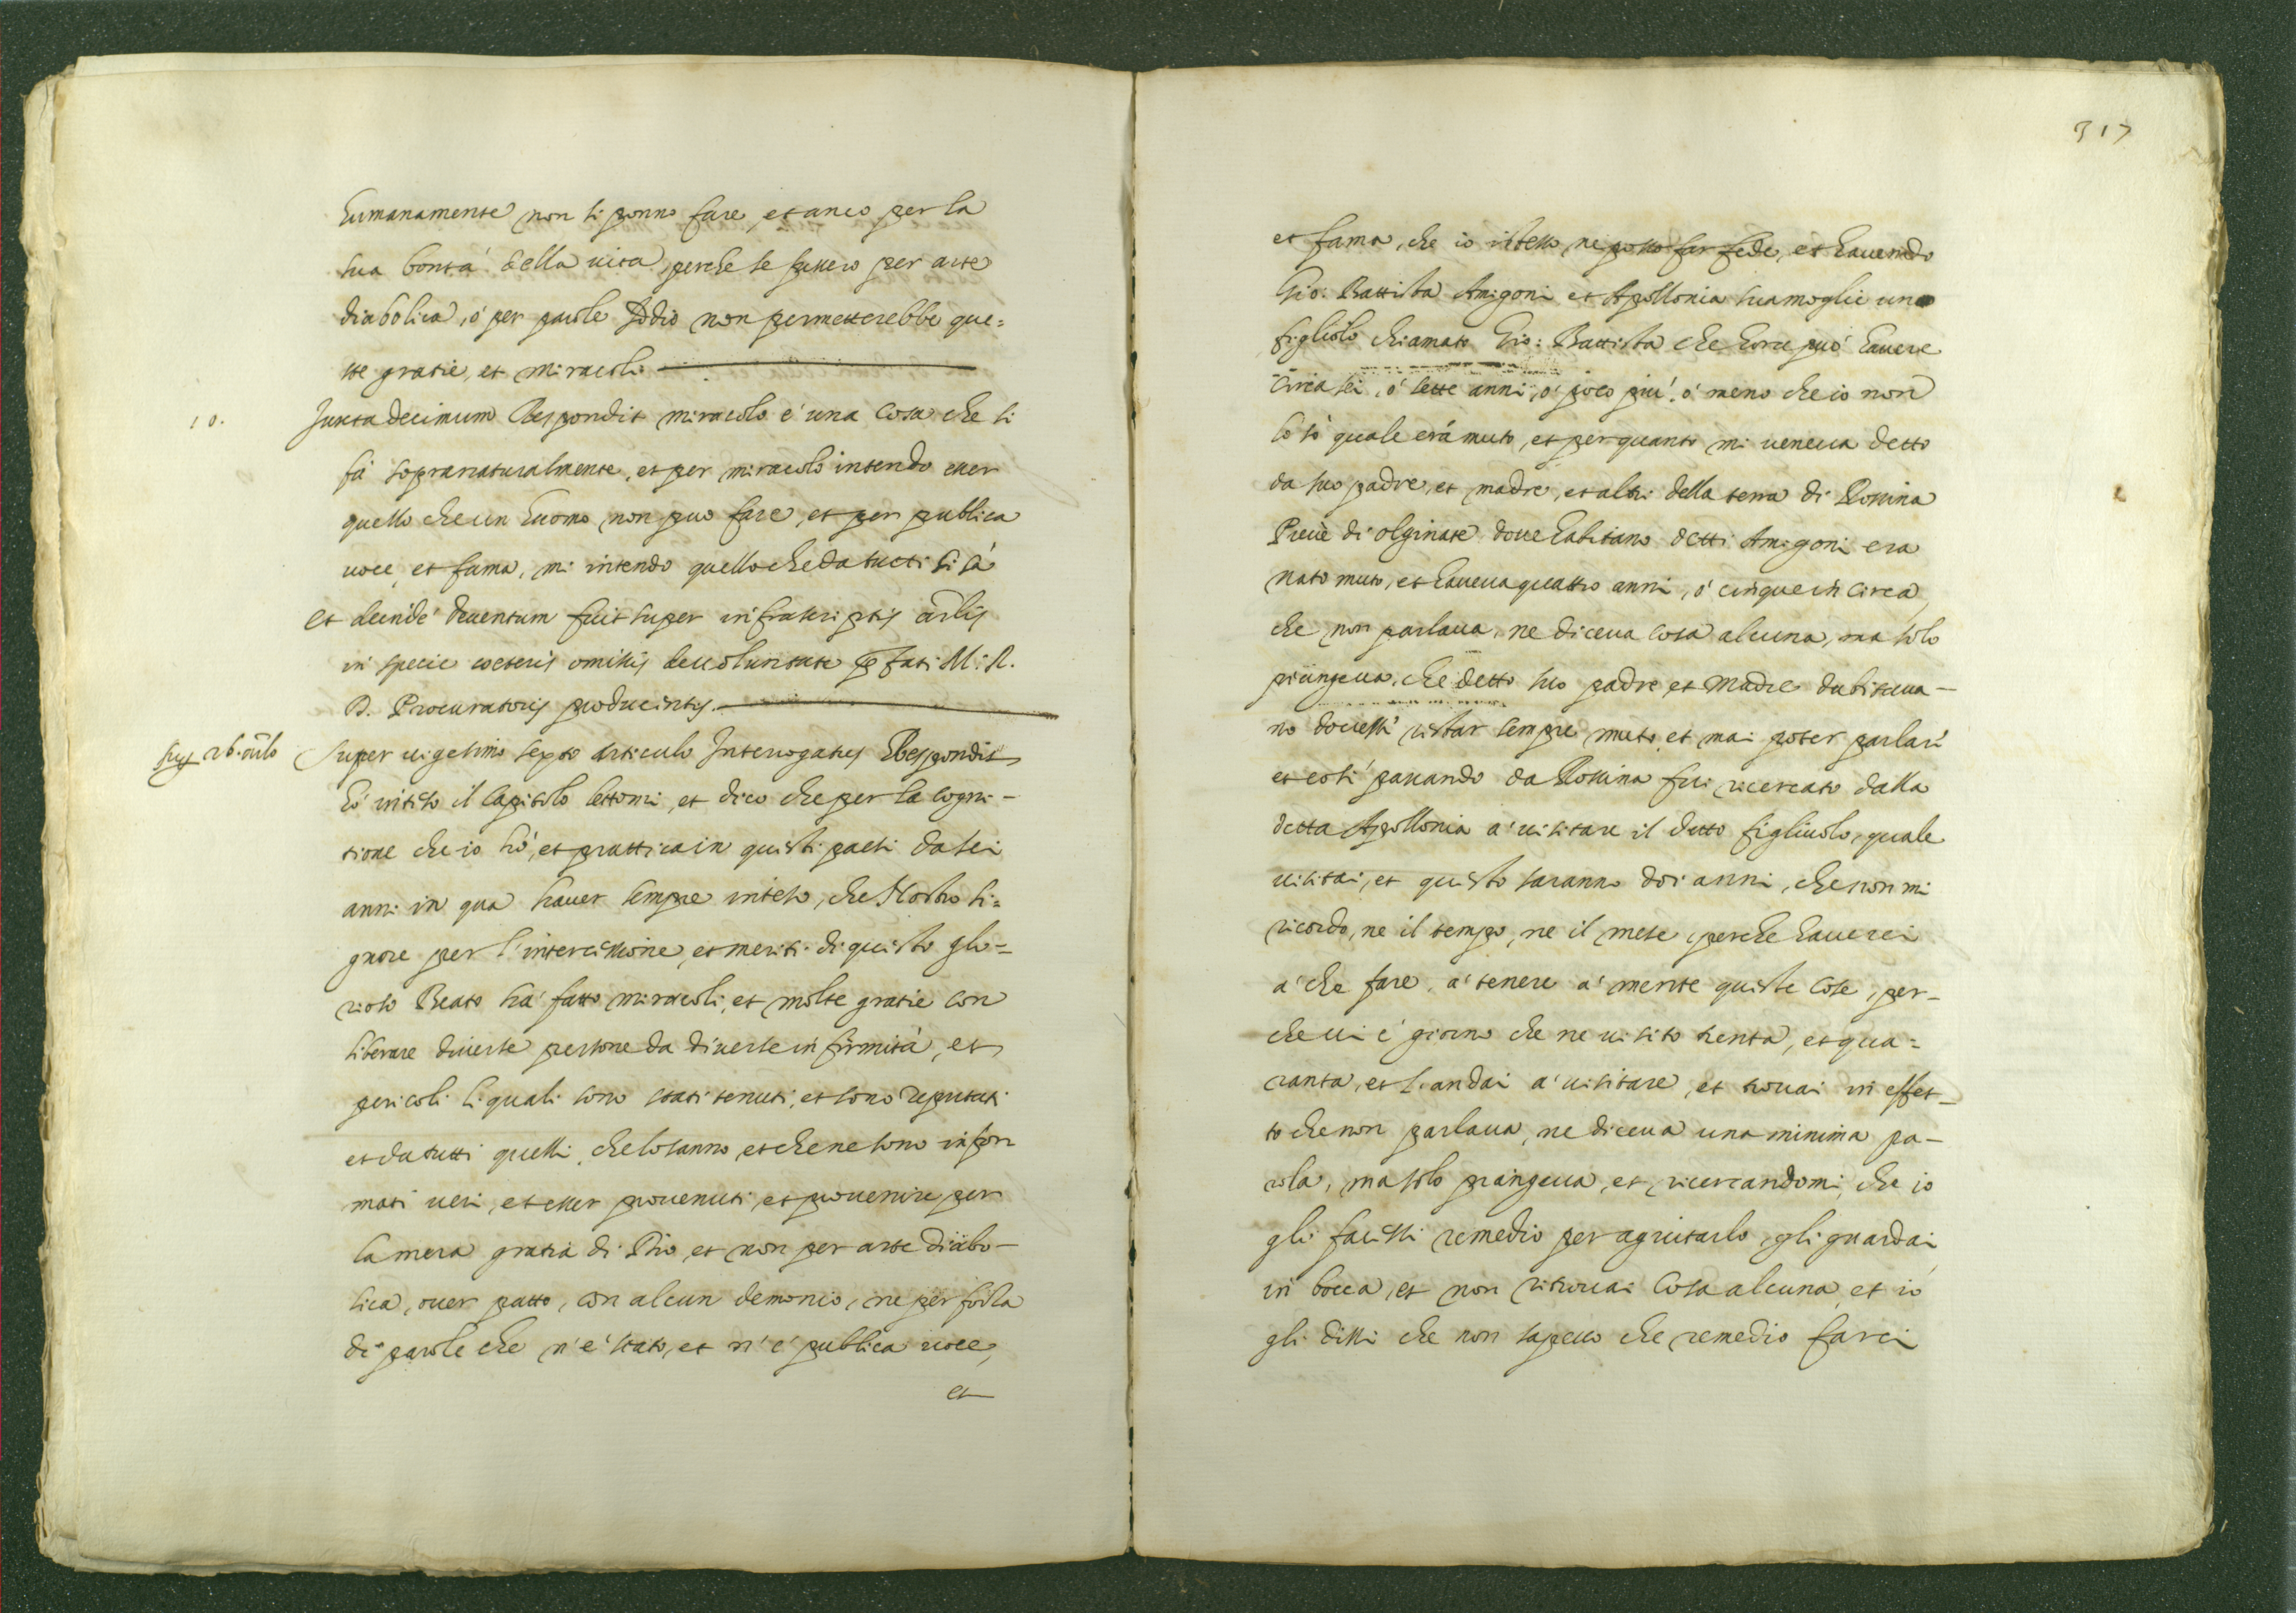 humanamente non si ponno fare, et anco per la
sua bontà della vita, perche se fussero per arte
diabolica, ò per parole Iddio non permetterebbe que=
ste gratie, et miracoli
10.
Juxta decimum Respondit miracolo é una cosa che si
fà sopranaturalmente, et per miracolo intendo esser
quello che un huomo non puo fare, et per publica
voce, et fama, mi intendo quello che da tutti si sà
Et deinde deventum fuit super infrascriptis arlis
in specie coeteris omissis de voluntate pfati M. R.
D. Procuratoris producentis
Sup 26. arlo
Super vigesimo sexto articulo Interrogatus Respondit
hò inteso il Capitolo lettomi, et dico che per la cogni-
tione che io hò, et prattica in questi paesi da sei
anni in qua haver sempre inteso, che Nostro Si=
gnore per l'intercessione, et meriti di questo glo=
rioso Beato hà fatto miracoli, et molte gratie con
liberare diverse persone da diverse infirmità, et
pericoli li quali sono stati tenuti, et sono reputati
et da tutti quelli, che lo sanno, et che ne sono infor
mati veri, et esser provenuti, et provenire per
la mera gratia di Dio, et non per arte diabo-
lica, over patto, con alcun demonio, ne per forza
di parole che n'é stato, et n'é publica voce,
et
317
et fama, che io istesso ne posso far fede, et havendo
Gio: Battista Amigoni et Apollonia sua moglie uno
figliolo chiamato Gio: Battista che hora può havere
circa sei, ó sette anni, ó poco piú, ó meno che io non
lo sò quale erà muto, et per quanto mi veneva detto
da suo padre, et madre, et altri della terra di Rossina
Pievè di olginate dove habitano detti Amigoni era
nato muto, et haveva quattro anni, ó cinque in circa,
che non parlava, ne diceva cosa alcuna, ma solo
piangeva, che detto suo padre et madre dubitava-
no dovessi restar sempre muto, et mai poter parlari
et cosi passando da Rossina fui ricercato dalla
detta Apollonia a' visitare il detto figliuolo, quale
visitai, et questo saranno doi anni, che non mi
ricordo, ne il tempo, ne il mese, perche haverei
a' che fare, a' tenere a' mente queste cose, per-
che vi é giorno che ne visito trenta, et qua=
ranta, et l'andai a' visitare, et trovai in effet-
to che non parlava, ne diceva una minima pa-
rola, ma solo piangeva, et ricercandomi, che io
gli facessi remedio per agiutarlo, gli guardai
in bocca, et non ritrovai cosa alcuna, et io
gli dissi che non sapevo che remedio farci